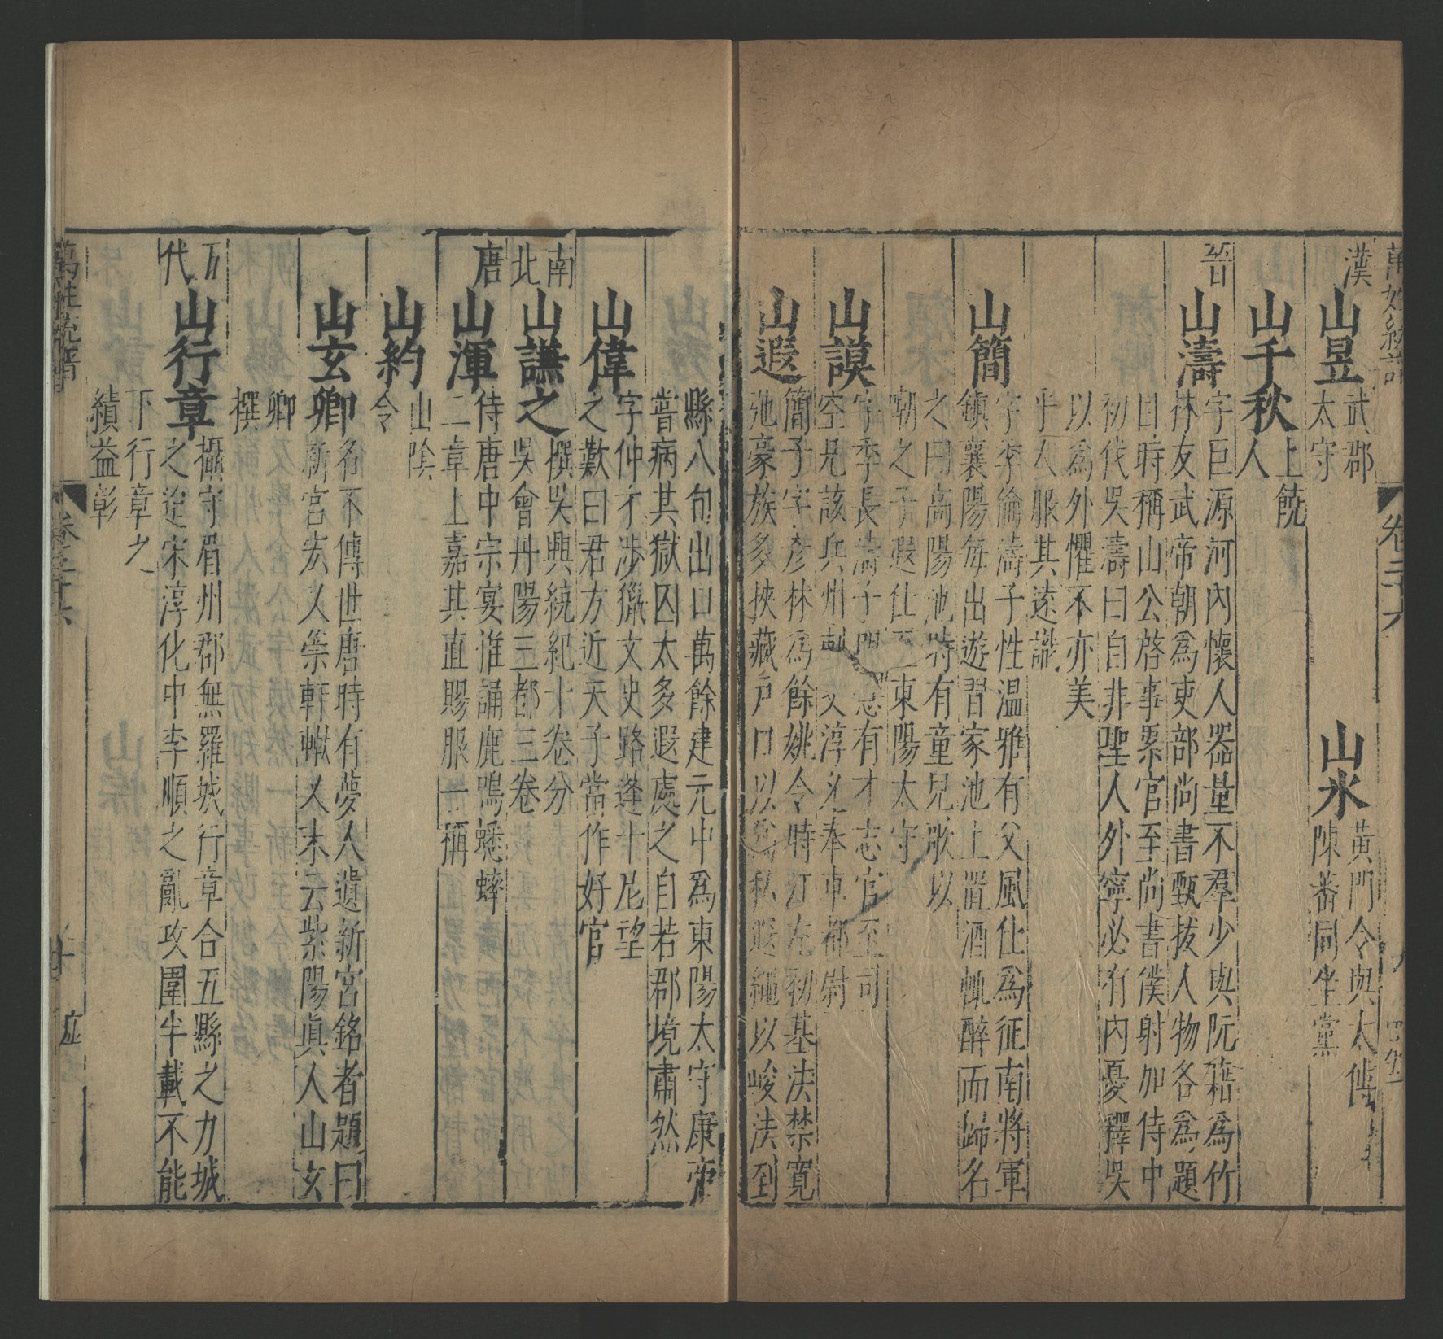 漢
山昱
武郡
太守
山氷
黃門令與太傅
陳蕃同坐黨
山千秋
上
人
晉
山濤
字巨源河內懷人器量不羣少與阮籍爲竹
林友武帝朝爲吏部尚書甄拔人物各爲題
目時稱山公啓事累官至尚書僕射加侍中
初伐吳濤曰自非聖人外寧必有內憂釋吳
以爲外懼不亦美
乎人服其遠識
山簡
字季倫濤子性溫雅有父風仕爲征南將軍
鎮襄陽每出遊習家池上置酒輒醉而歸名
之曰高陽池時有童兒歌以
嘲之子遐仕至東陽太守
山謨
字季長濤子明惠有才志官至司
空兄該幷州刺史淳允奉車都尉
山遐
簡子字彥林爲餘姚令時江左初基法禁寬
弛豪族多挾藏戶口以爲私遐繩以峻法到
縣八旬出口萬餘建元中爲東陽太守康帝
嘗病其獄囚太多遐處之自若郡境肅然
山偉
字仲才涉獵文史路逢十尼望
之歎曰君方近天子當作好官
南
北
山謙之
撰吳興統紀十卷分
吳會丹陽三都三卷
唐
山渾
侍唐中宗宴惟誦鹿鳴蟋蟀
二章上嘉其直賜服一稱
山約
山陰
令
山玄卿
名不傳世唐時有夢人遺新宮銘者題曰
新宮宏人崇軒轍人末云紫陽眞人山玄
卿
撰
五
代
山行章
攝守眉州郡無羅城行章合五縣之力城
之迨宋淳化中李順之亂攻圍半載不能
下行章之
績益彰
萬姓統譜
卷二十六
十